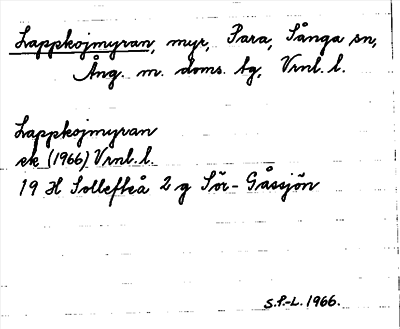 Lappkojmyran, myr, Para, Sånga sn,
Ång. m. doms. bg, Vrnl. l.
Lappkojmyran
ek (1966) Vrnl. l.
19 H Sollefteå 2 g Sör-Gåssjön
S.P.-L. 1966.